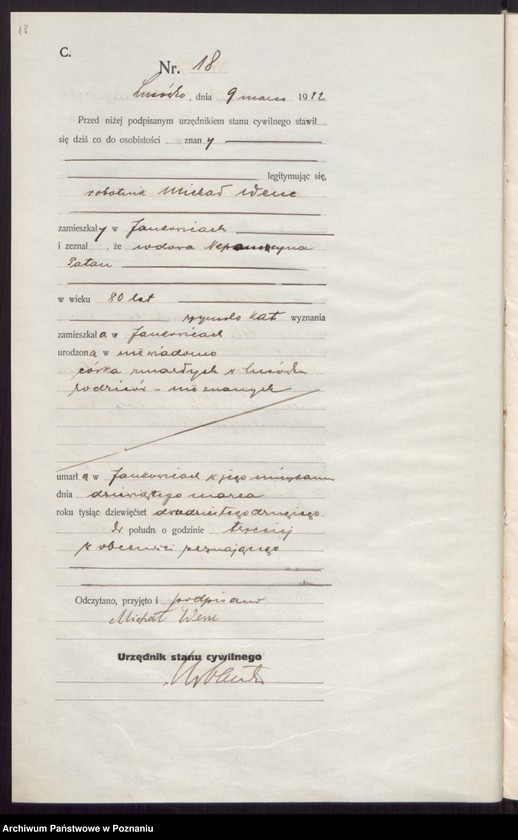 18
C.
Nr. 18
Lusówko, dnia 9 marca 1922
Przed niżej podpisanym urzędnikiem stanu cywilnego stawił
się dziś co do osobistości znany
legitymując się,
robotnik Michał Wenc
zamieszkały w Jankowicach
i zeznał, że wdowa
Patan
w wieku 80 lat
rzymsko kat wyznania
zamieszkała w Jankowicach
urodzona w niewiadomo
córka zmarłych w
rodziców - nieznanych
umarła w Jankowicach w jego mieszkaniu
dnia dziewiątego marca
roku tysiąc dziewięćset dwudziestego drugiego
połudn. o godzinie trzeciej
w obecności zeznającego
Odczytano, przyjęto i podpisano
Michał Wenc
Urzędnik stanu cywilnego
Archiwum Państwowe w Poznaniu